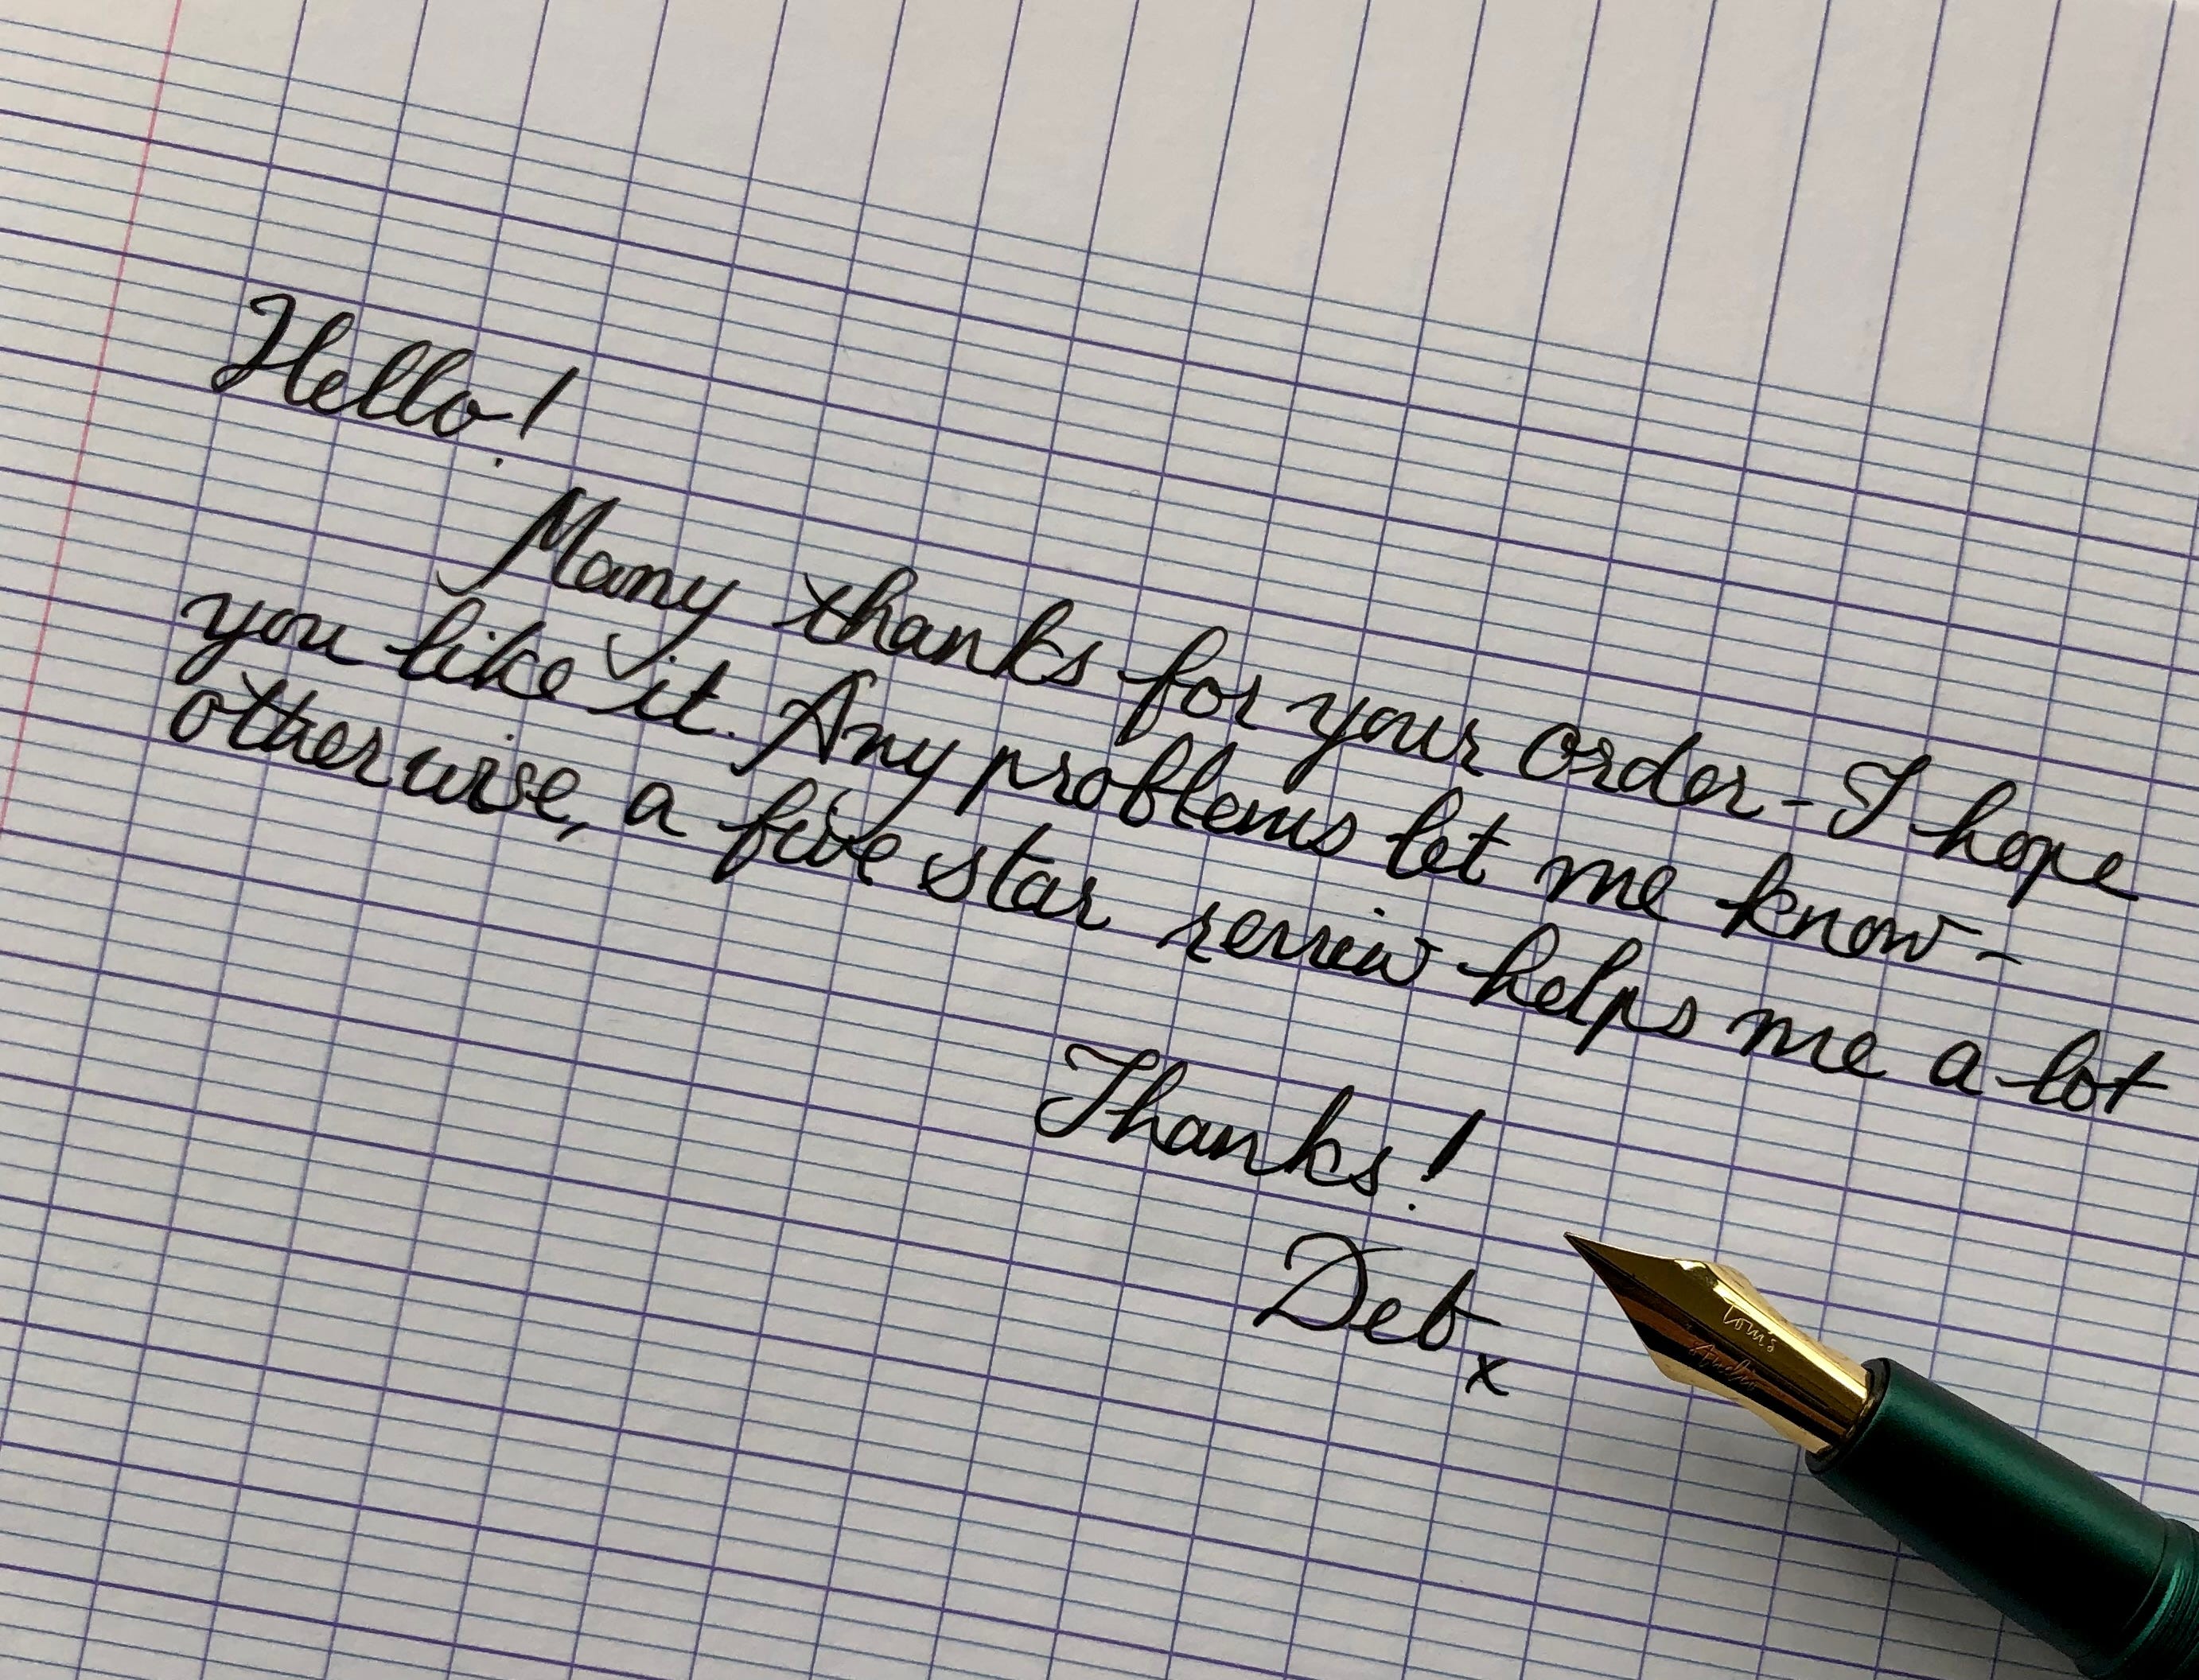 Hello!
Many thanks for your order - I hope
you like it. Any problems let me know -
otherwise, a five star review helps me a lot
Thanks!
Deb x
Tom's
Studio